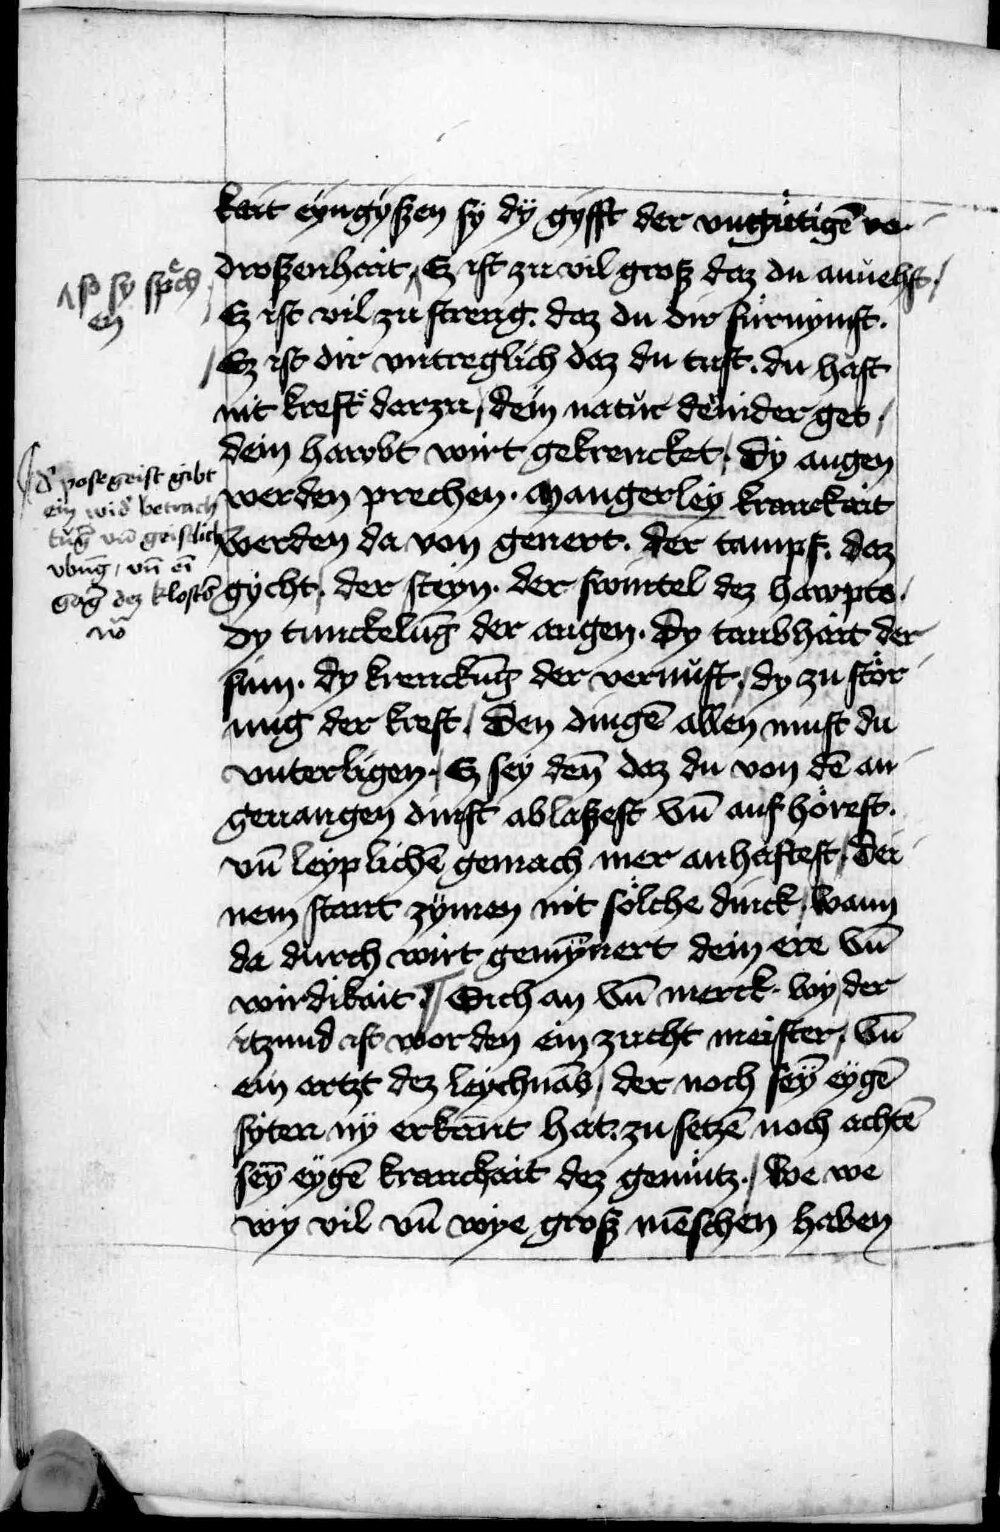 kait eyngyßen sy dÿ gyfft der vngütigē ve-
droßenhait, Ez ist zu vil groß daz du anuehst,
Ez ist vil zu streng. daz du dir fürnymst.
Ez ist dir vntreglich daz du tust. du hast
nit kreft darzu, dein natur denider get,
dein hawbt wirt gekrencket, dy augen
werden prechen. Mangerley kranckait
werden da von genert. der tampf. daz
gycht, der steyn. der swintel dez hawpts,
dy tunckelūg der augen. dy taubhait der
sinn. dy krenckūg der vernuft, dy zu stör-
ung der kreft, Den dingē allen must du
vnterligen, Ez sey deñ daz du von dē an-
gefangen dinst ablaßest vn̄ auf hörest.
vn̄ leyplichē gemach mer anhaftest, Dei-
nem staat zymen nit sölche dinck, wann
da durch wirt gemynnert dein ere vn̄
wirdikait, Sich an vn̄ merck. wy der
itzund ist worden ein zucht meister, vn̄
ein artzt dez leychnās, der noch seȳ eygē
syten ny erkānt hat. zu setzē noch achtē
seȳ eygē kranckait dez gemütz, We we
wy vil vn̄ wye groß mēschen haben
so sy spech
en
d' pose geist gibt
ein wid' betrach
tūg vn̄ geistlich
vbūg, vn̄ ei
dez klosters